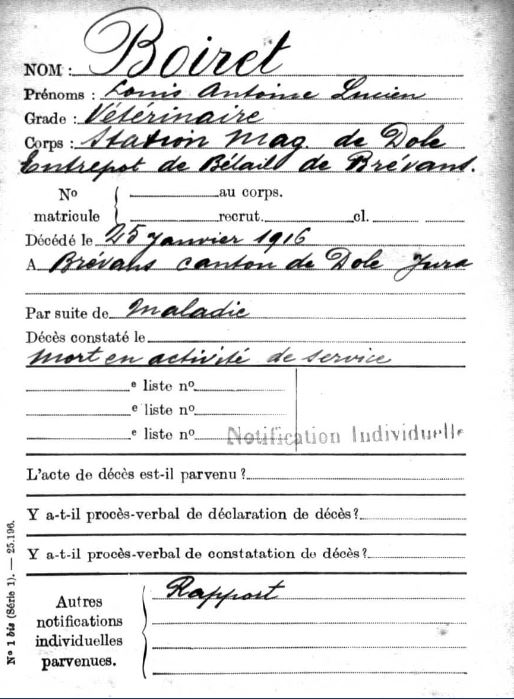 NOM : Boiret
Prénoms : Louis Antoine Lucien
Grade : Vétérinaire
Corps : Station Mag. de Dole
Entrepot de Bétail de Brévans.
No matricule { au corps.
recrut. cl.
Décédé le 25 Janvier 1916
A Brévans canton de Dole Jura
Par suite de Maladie
Décès constaté le
Mort en activité de service
e liste no
e liste no
e liste no
Notification Individuelle
L'acte de décès est-il parvenu ?
Y a-t-il procès-verbal de déclaration de décès ?
Y a-t-il procès-verbal de constatation de décès ?
Autres notifications individuelles parvenues. { Rapport
No 1 bis (Série 1). — 25.196.